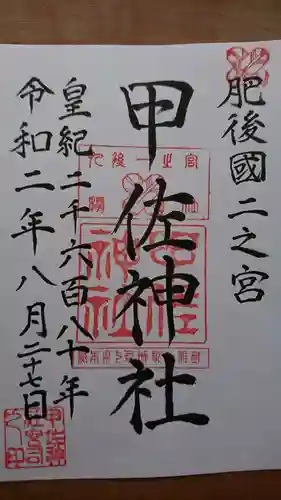 肥後國二之宮
甲佐神社
皇紀二千六百八十年
令和二年八月二十七日
甲佐神社